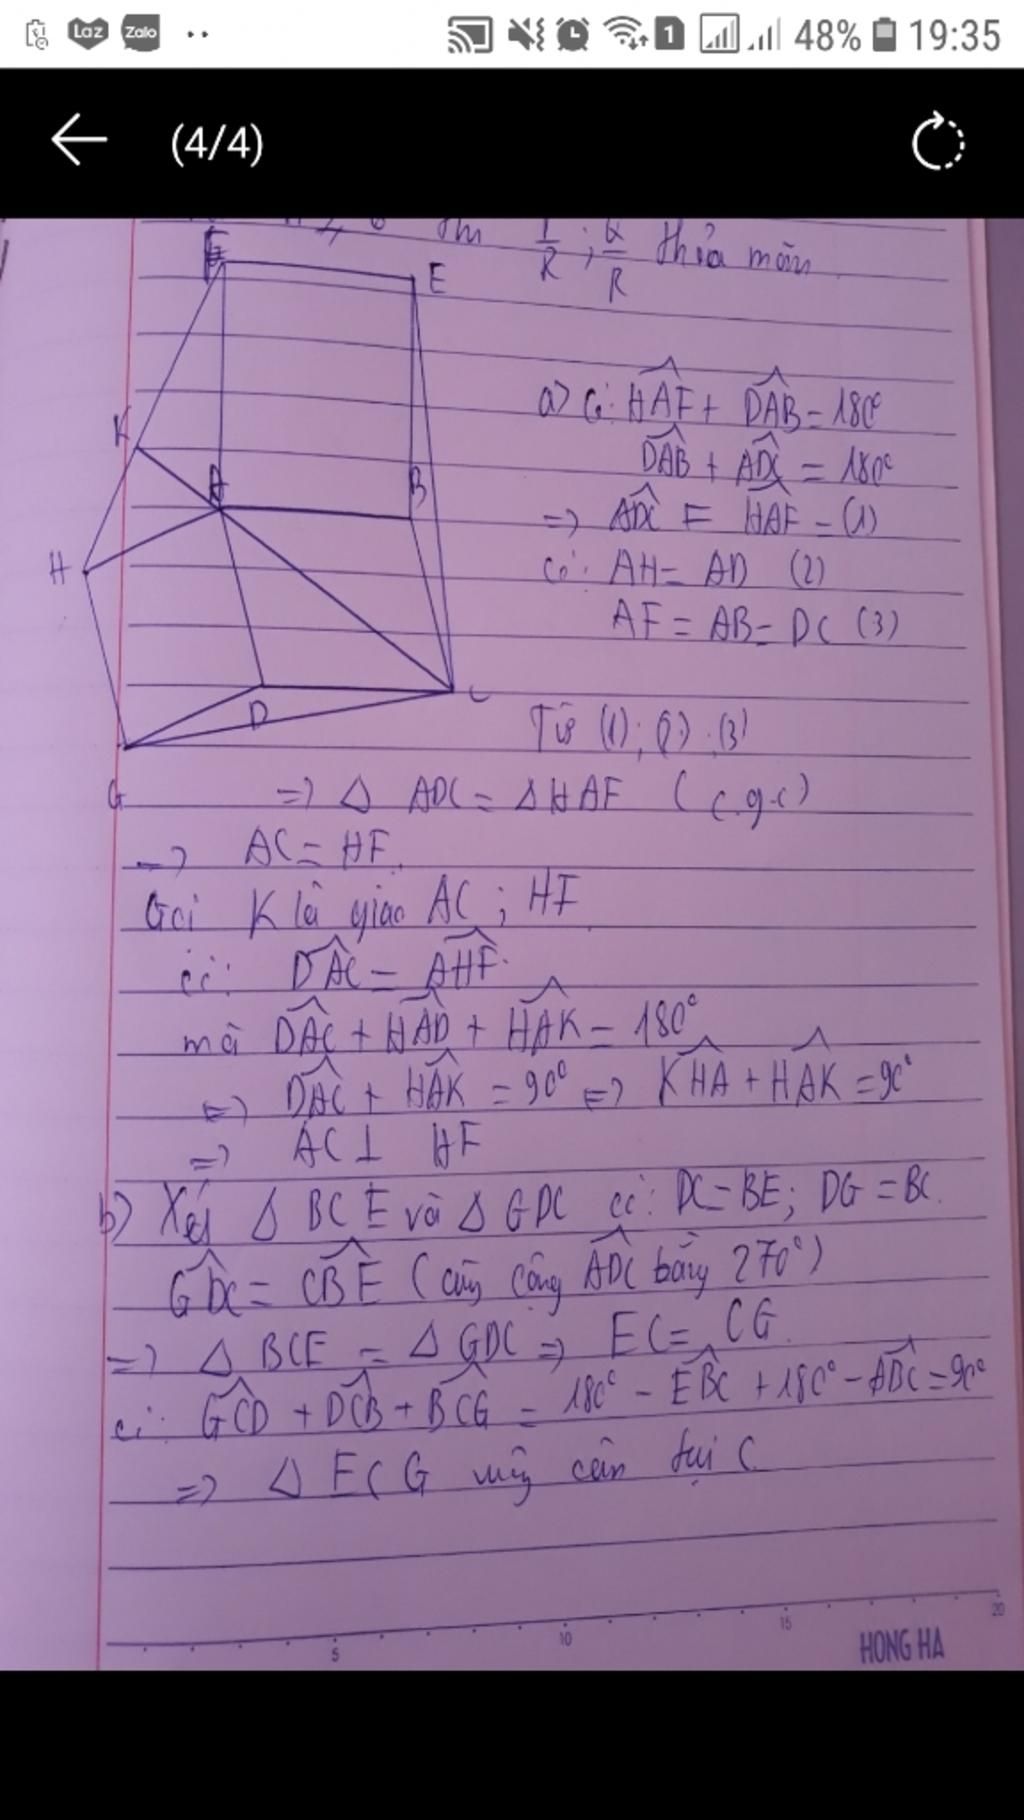 Laz Zalo 1 48% 19:35
(4/4)
thì 1/R ; Q/R thỏa mãn
E
K
A
B
H
D
C
G
a) Có: HAF + DAB = 180°
DAB + ADC = 180°
=> ADC = HAF = (1)
Có: AH = AD (2)
AF = AB = DC (3)
Từ (1); (2); (3)
=> Δ ADC = Δ HAF (c.g.c)
=> AC = HF.
Gọi K là giao AC ; HF
có: DAC = AHF.
mà DAC + HAD + HAK = 180°
<=> DAC + HAK = 90° <=> KHA + HAK = 90°
=> AC ⊥ HF
b) Xét Δ BCE và Δ GDC có: DC = BE; DG = BC.
GDC = CBE (cùng cộng ADC bằng 270°)
=> Δ BCE = Δ GDC => EC = CG.
có: GCD + DCB + BCG = 180° - EBC + 180° - ABC = 90°
=> Δ ECG cân tại C.
5 10 15 20
HONG HA